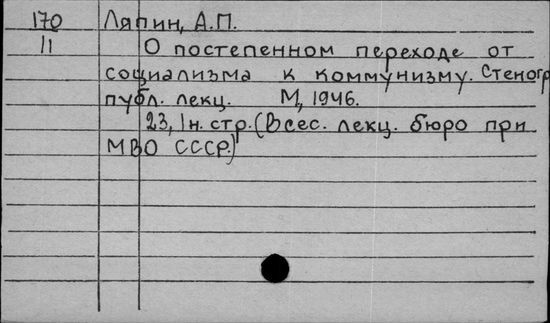 170 Ляпин, А.П.
11 О постепенном переходе от
социализма к коммунизму. Стеногр
публ. лекц. М, 1946.
23, 1н. стр. (Всес. лекц. бюро при
МВО СССР.)